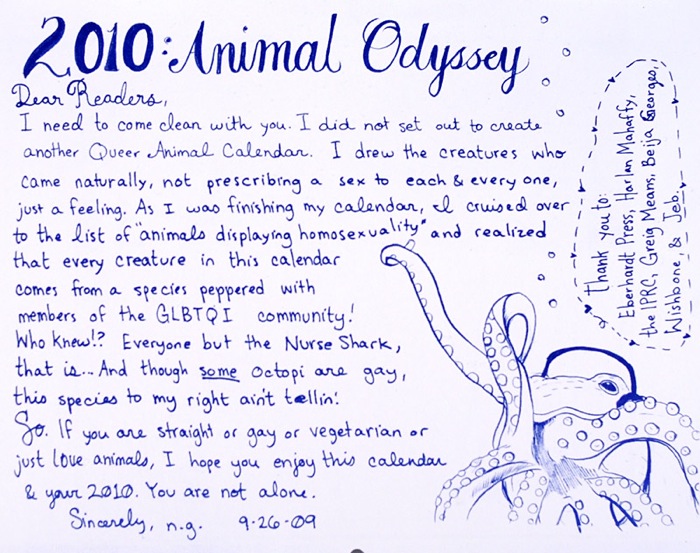 2010: Animal Odyssey
Dear Readers,
I need to come clean with you. I did not set out to create
another Queer Animal Calendar. I drew the creatures who
came naturally, not prescribing a sex to each & every one,
just a feeling. As I was finishing my calendar, I cruised over
to the list of "animals displaying homosexuality" and realized
that every creature in this calendar
comes from a species peppered with
members of the GLBTQI community!
Who knew!? Everyone but the Nurse Shark,
that is... And though some Octopi are gay,
this species to my right ain't tellin!
So. If you are straight or gay or vegetarian or
just love animals, I hope you enjoy this calendar
& your 2010. You are not alone.
Sincerely, n.g. 9-26-09
Thank you to:
Eberhardt Press, Harlan Mahaffy,
the IPRC, Greig Means, Beija Georges,
Wishbone, & Jeb.